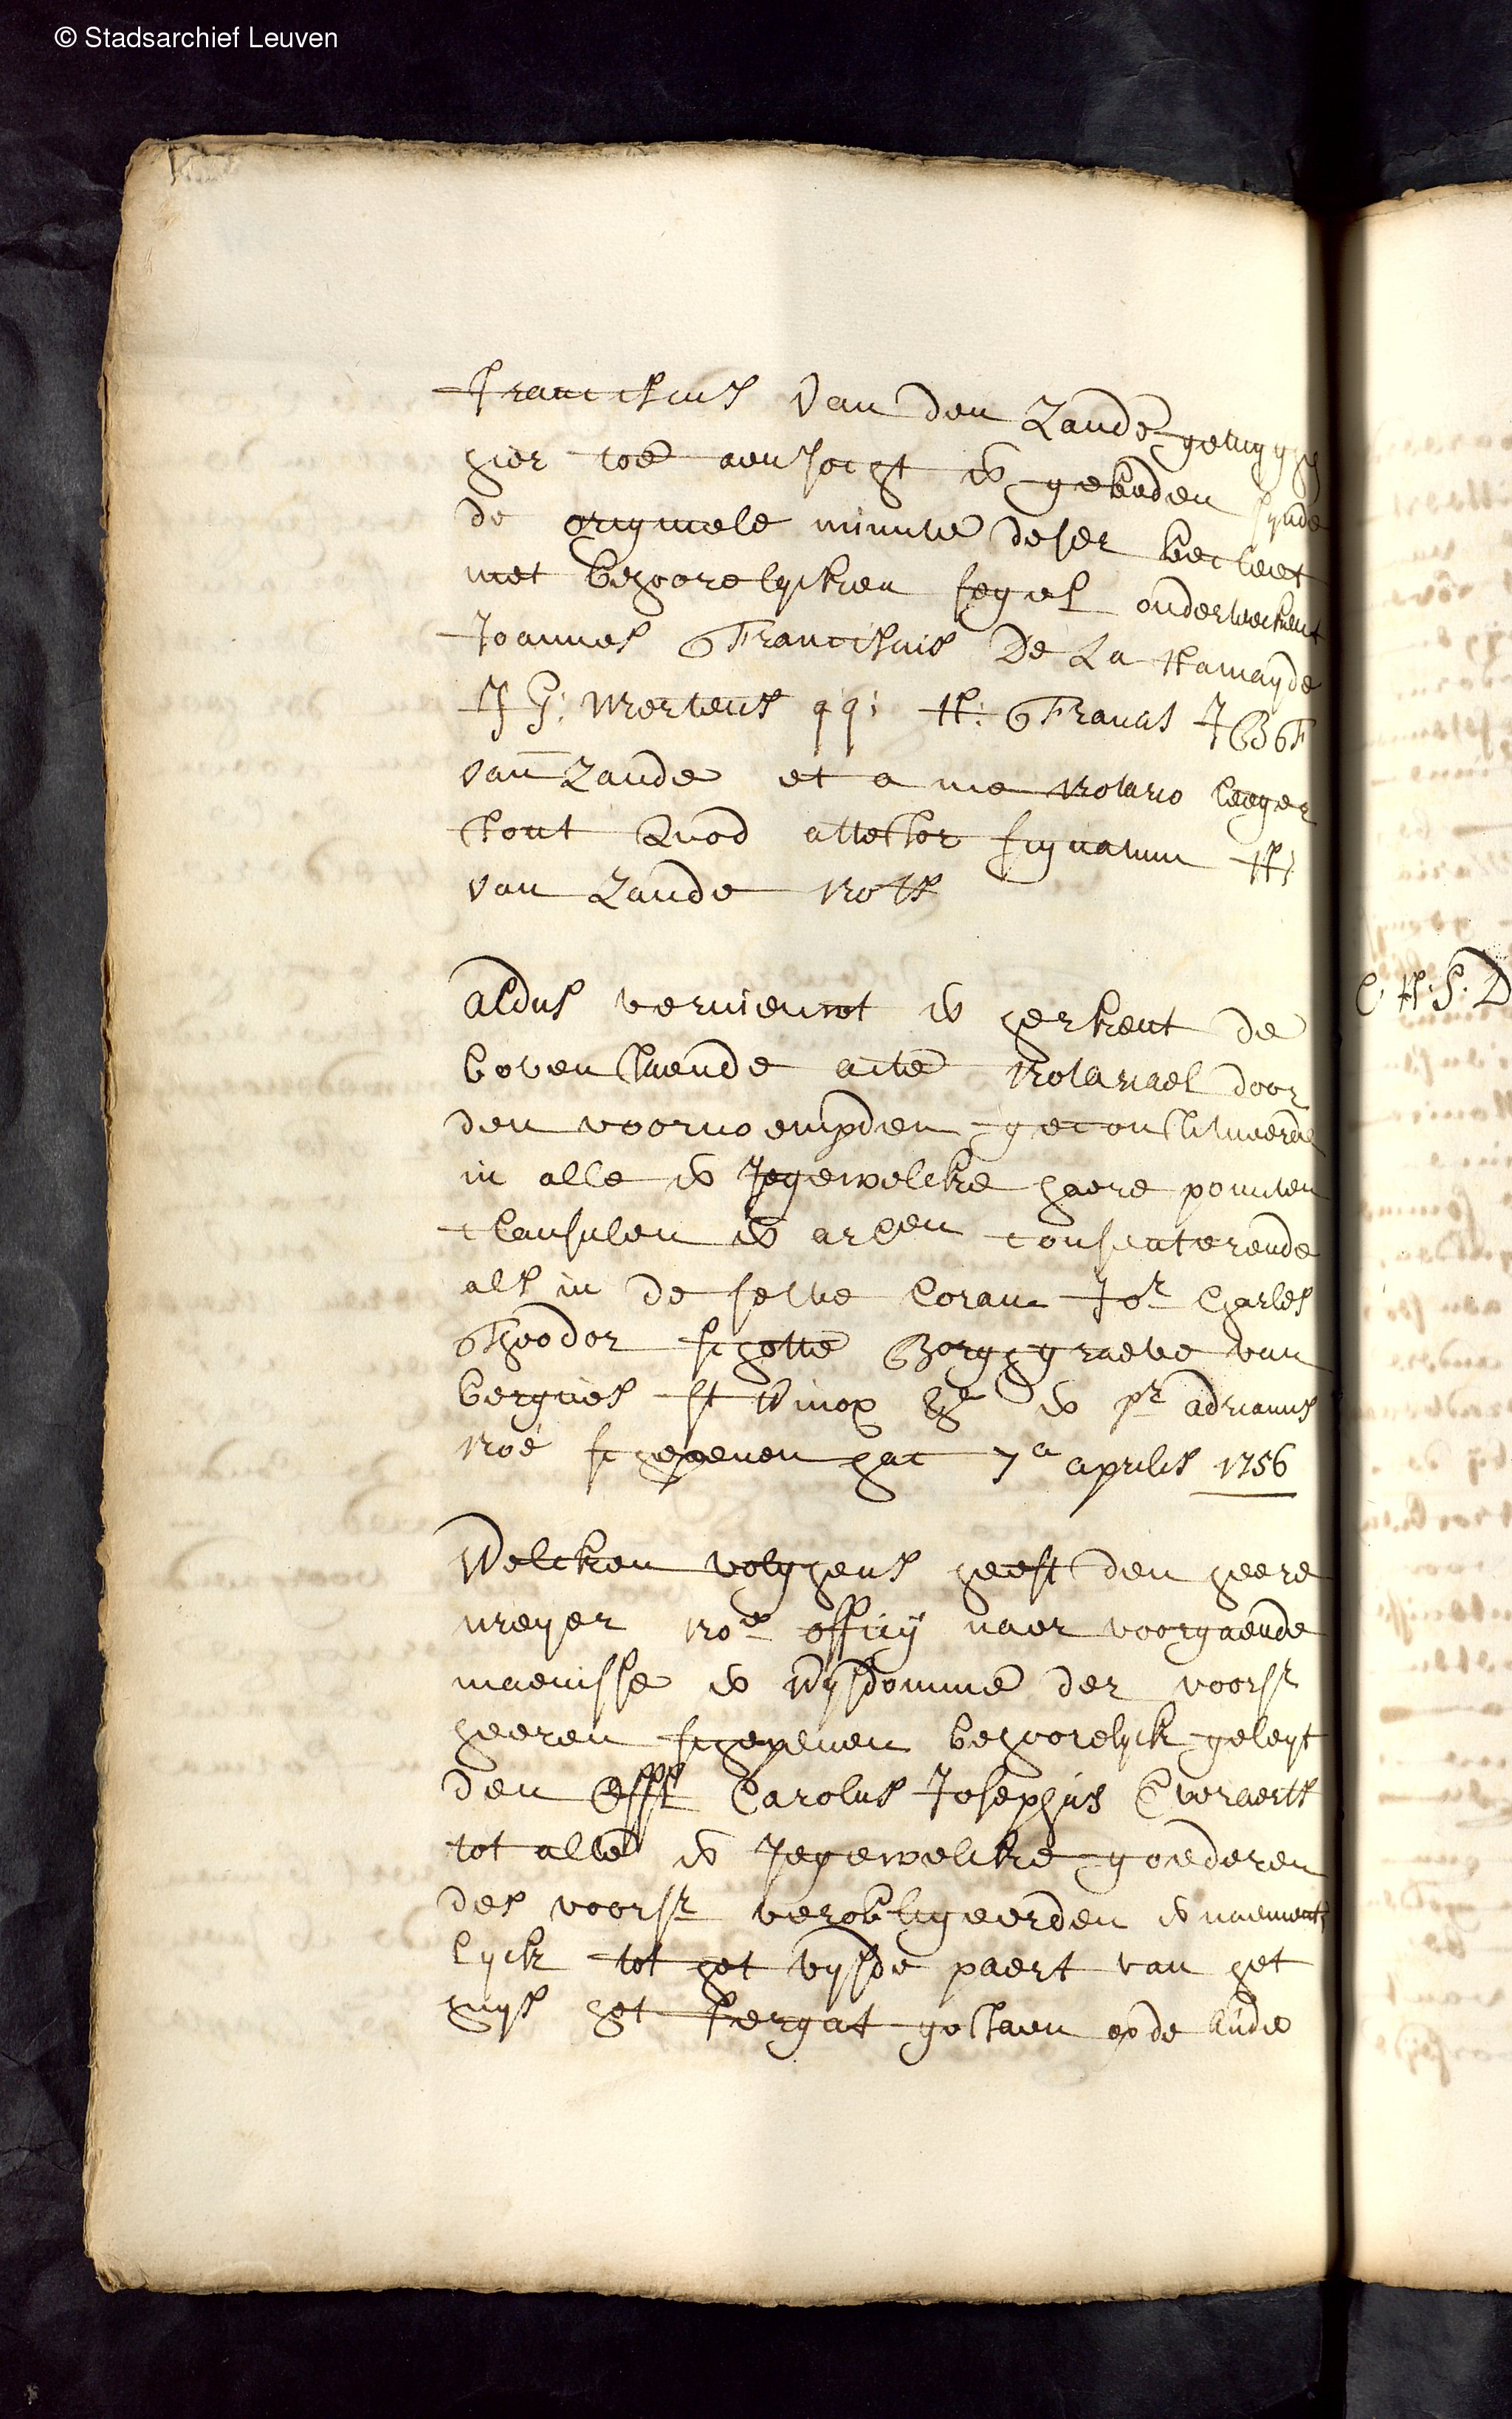 © Stadsarchief Leuven
Franciscus Van den Zande getuyghen
hier toe aensocht ende gebeden synde
de originele minute deser becleet
met behoorelycken segel onderteekent
Joannes Franciscus De La Hamayde
J G: Mertens qq: H: Francis J B F
van Zande et a me Notario leeger
stont Quod attestor signatum H:
van Zande Nots
aldus vernieuwt ende herkent de
bovenstaende acte Notariael door
den voornoempden geconstitueerde
in alle ende Jegewelcke haere poincten
clausulen ende arlen consenterende
als in de selve Coram Jor Charles
Theodor schotte Borghgraeve van
bergues st Winox ende pr adrianus
Noé schepenen hac 7a aprilis 1756
Welcken volghens heeft den heere
meyer noe officy naer voorgaende
maenisse ende wysdomme der voorsr
heeren schepenen behoorelyck geleyt
den Carolus Josephus Everaerts
tot alle ende Jegewelcke goederen
des voorsr verobligeerden ende naement
lyck tot het vyfde paert van het
huys het kergat gestaen op de
C H: S: D